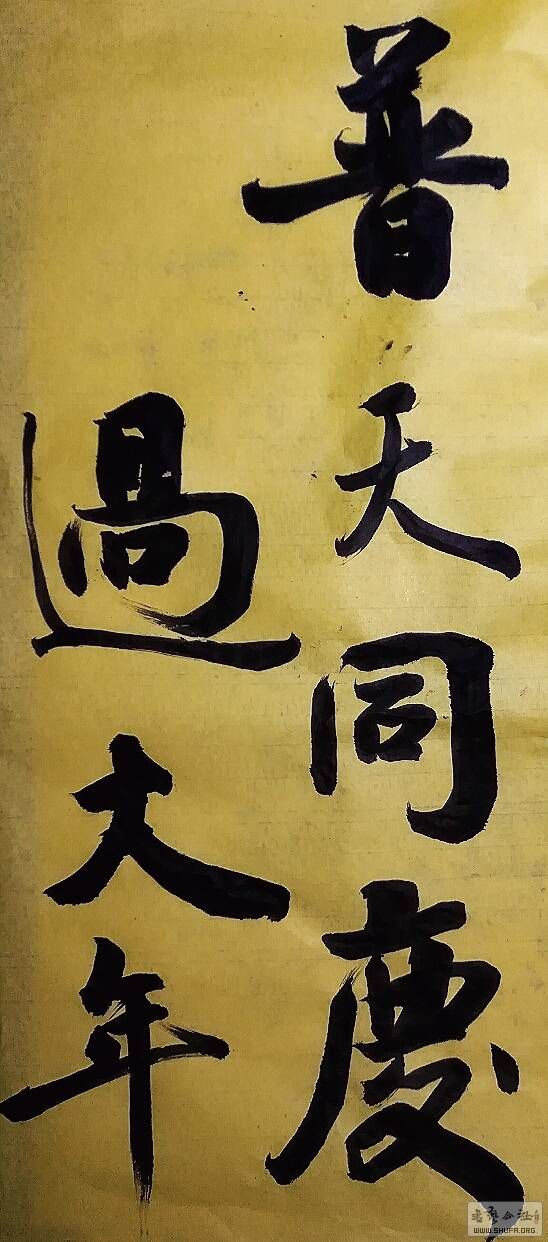 普天同慶
過大年
WWW.SHUFA.ORG